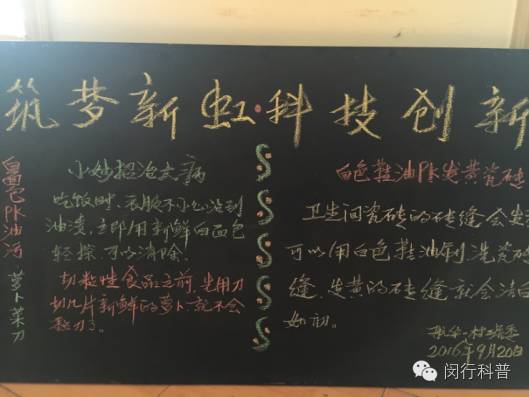 筑梦新虹·科技创新
面包PK油污
萝卜菜刀
小妙招治大病
吃饭时,衣服不小心沾到
油渍,立即用新鲜白面包
轻擦,可以消除。
切粘性食品之前,先用刀
切几片新鲜的萝卜,就不会
粘刀了。
白色鞋油PK发黄瓷砖
卫生间瓷砖的砖缝会发
可以用白色鞋油刷洗瓷砖
缝,发黄的砖缝就会洁白
如初。
2016年9月20日
闵行科普